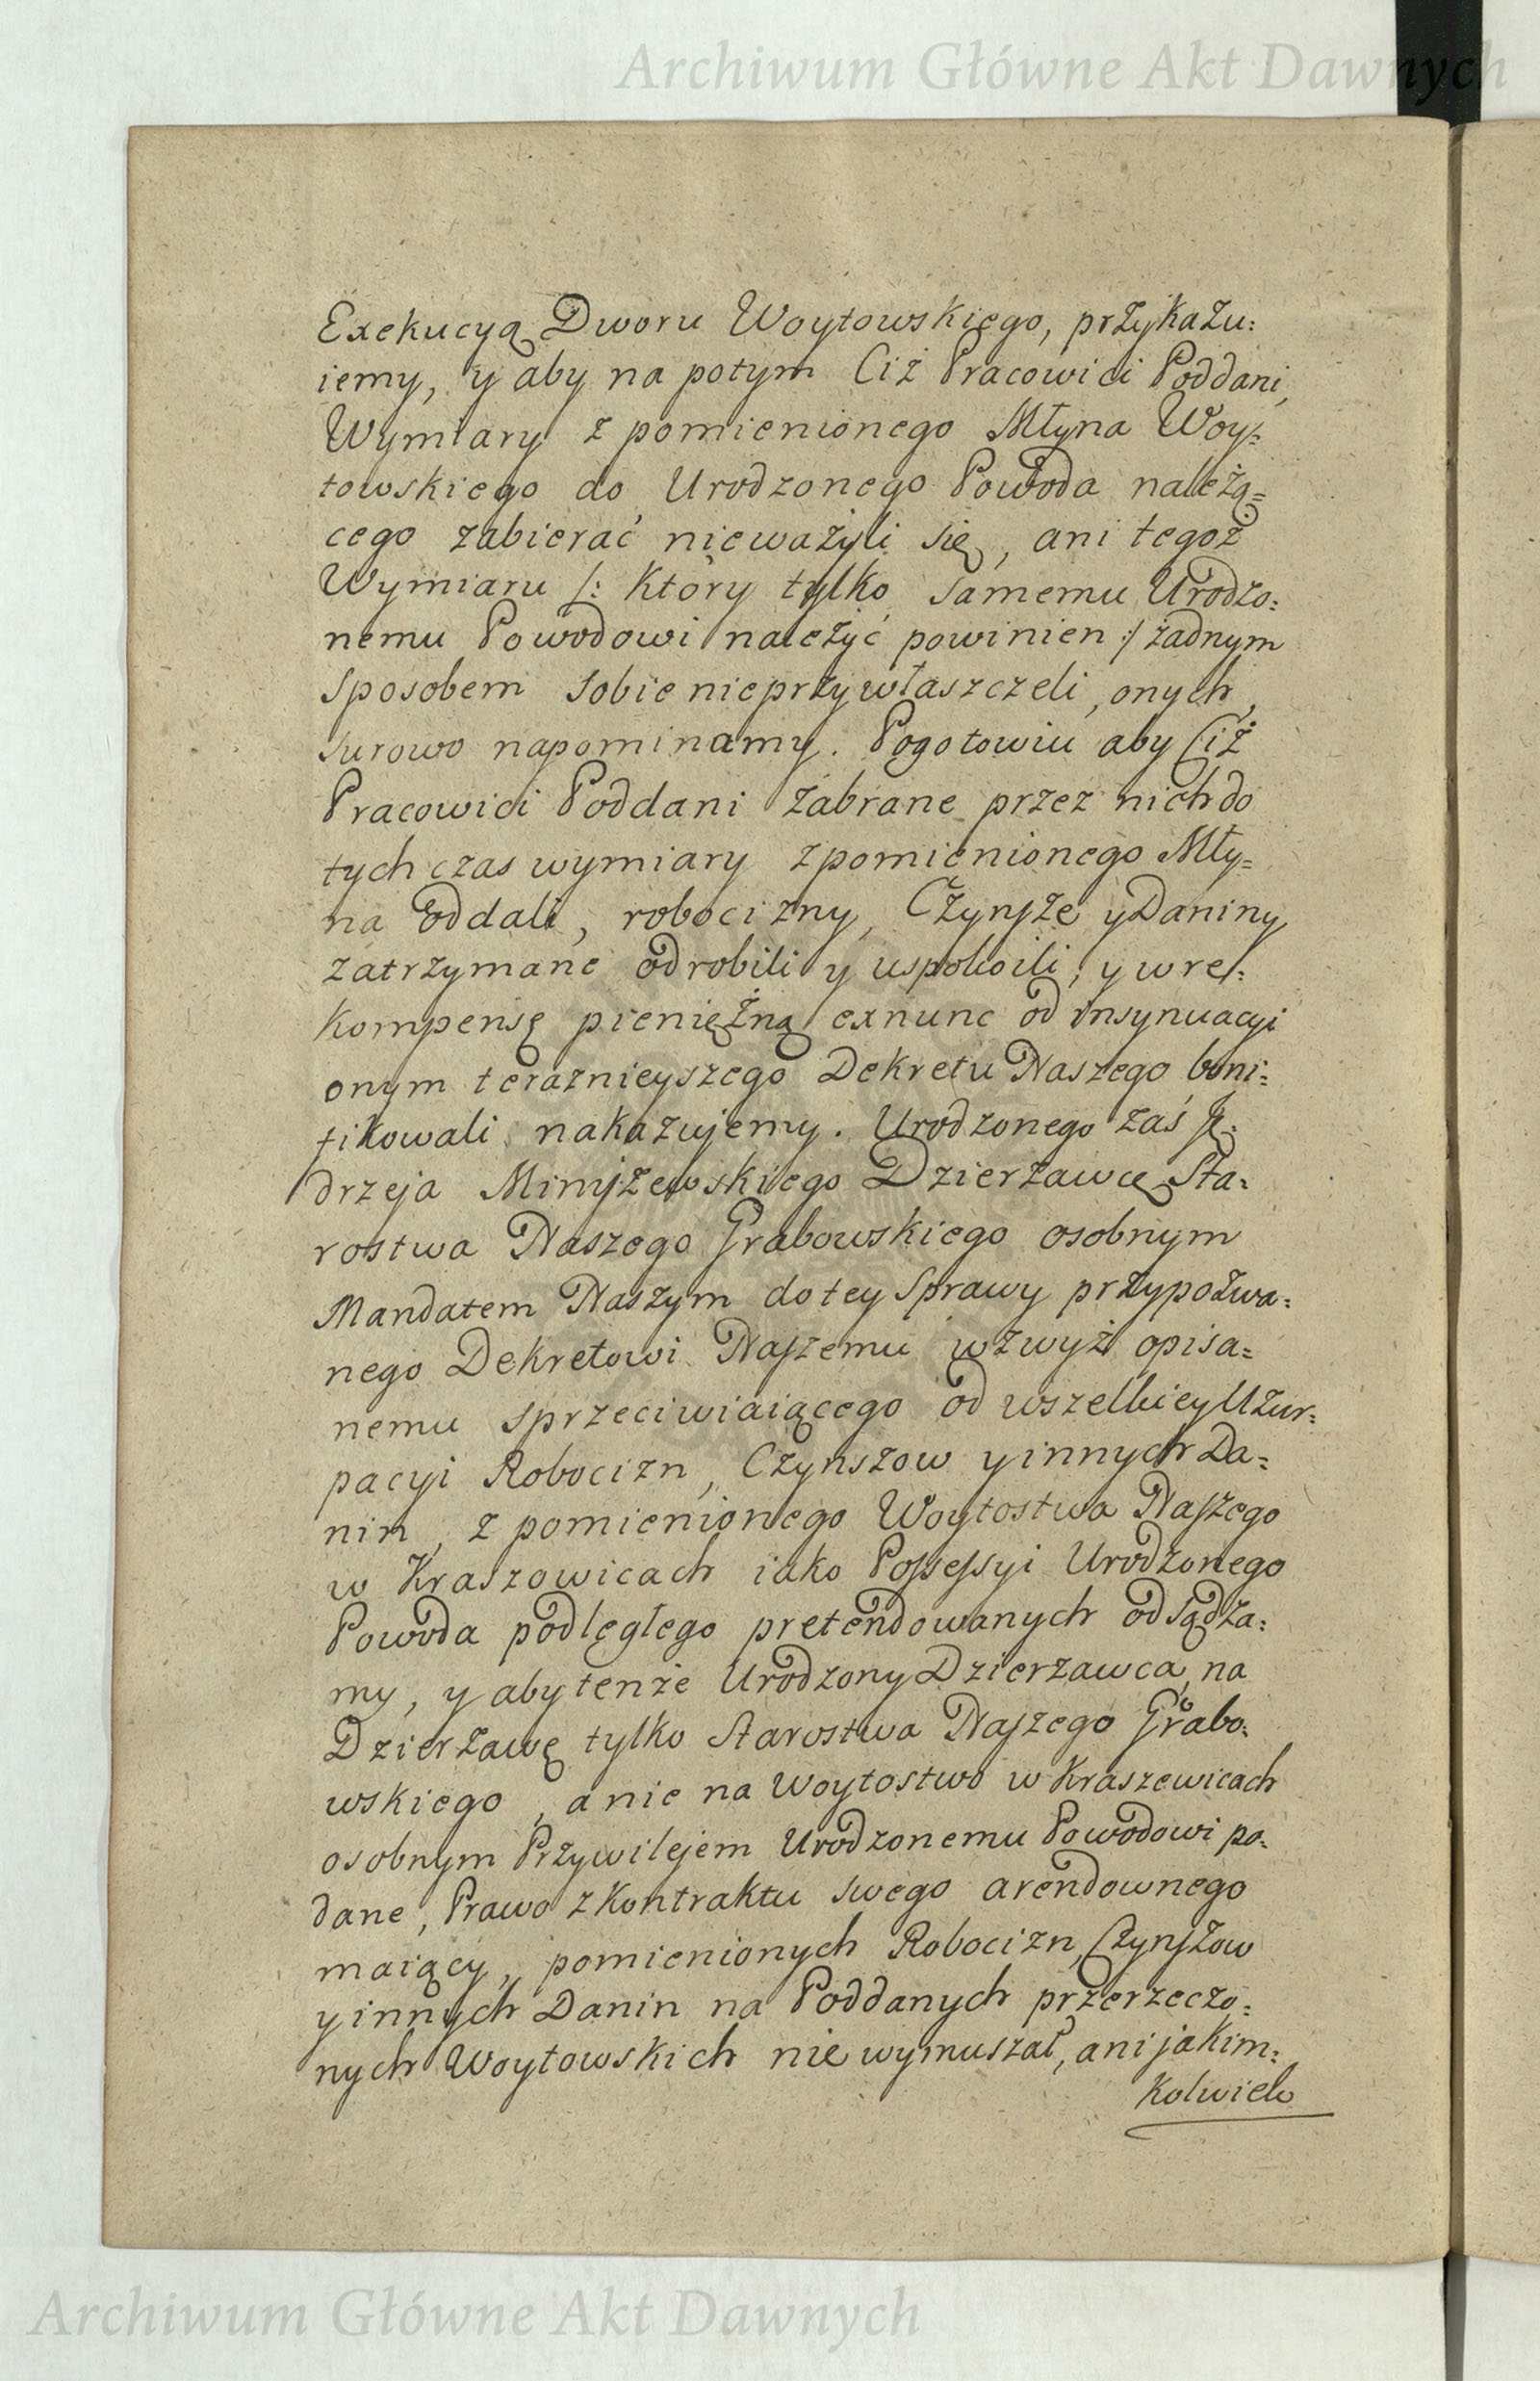 Archiwum Główne Akt Dawnych
Exekucyą Dworu Woytowskięgo, przykazu:
iemy, y aby na potym Ciż Pracowici Poddani,
Wymiary z pomienionego Młyna Woy:
towskiego do Urodzonego Powoda należą=
cego zabierać nieważyli się, ani tegoż
Wymiaru /: Który tylko samemu Urodzo:
nemu Powodowi należyć powinien :/ żadnym
sposobem sobie nieprzywłaszczeli, onych,
surowo napominamy. Pogotowiu aby Ciż
Pracowici Poddani zabrane przez nich do
tych czas wymiary zpomienionego Mły=
na Oddali, robocizny, Czynsze y Daniny
zatrzymane odrobili y uspokoili, y w re:
kompensę pieniężną exnunc od insynuacyi
onym teraznieyszego Dekretu Naszego boni:
fikowali nakazujemy. Urodzonego zaś Ję:
drzeja Minyszewskiego Dzierżawcę Sta:
rostwa Naszego Grabowskiego osobnym
Mandatem Naszym do tey Sprawy przypozwa:
nego Dekretowi Naszemu wzwyż opisa=
nemu sprzeciwiaiącego od wszelkiey Uzur:
pacyi Robocizn, Czynszow y innych Da=
nin, z pomienionego Woytostwa Naszego
w Kraszowicach iako Possessyi Urodzonego
Powoda podlęgłego pretendowanych odsądza:
my, y aby tenże Urodzony Dzierżawca, na
Dzierżawę tylko Starostwa Naszego Grabo:
wskiego, a nie na Woytostwo w Kraszewicach
osobnym Przywilejem Urodzonemu Powodowi po:
dane, Prawo z Kontraktu swego arendownego
maiący, pomienionych Robocizn, Czynszow
y innych Danin na Poddanych przerzeczo:
nych Woytowskich nie wymuszał, ani jakim:
Kolwiek
Archiwum Główne Akt Dawnych